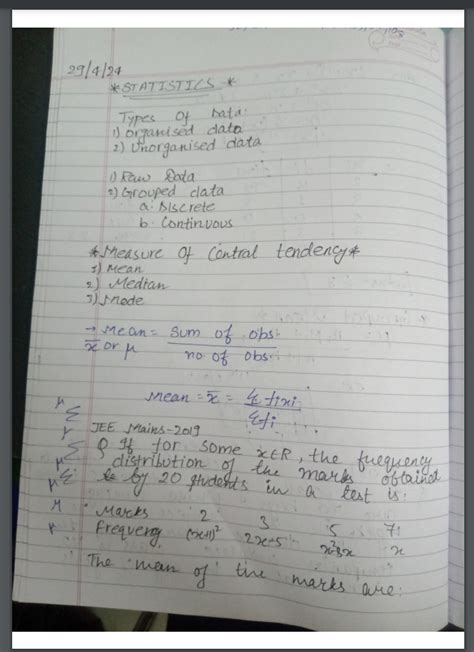 29/4/24
* STATISTICS *
Types Of Data:
1) Organised data
2) Unorganised data
1) Raw Data
2) Grouped data
a. Discrete
b. Continuous
* Measure Of Central tendency *
1) Mean
2) Median
3) Mode
→ Mean = Sum of obs.
x̄ or μ no of obs.
Mean = x̄ = Σ fixi
Σfi
JEE Mains-2019
Q If for some x∈R, the frequency
distribution of the marks obtained
by 20 students in a test is:
Marks 2 3 5 7
Frequency (x+1)² 2x-5 x²-3x x
The mean of the marks are: